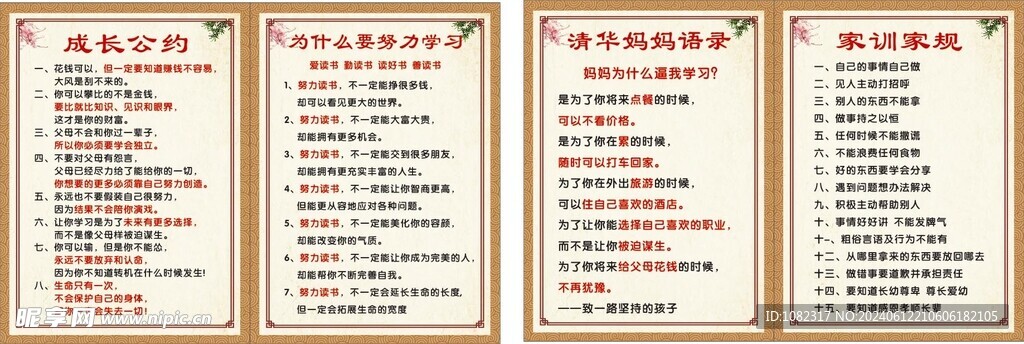 成长公约
一、花钱可以，但一定要知道赚钱不容易，
大风是刮不来的。
二、你可以攀比的不是金钱，
要比就比知识、见识和眼界，
这才是你的财富。
三、父母不会和你过一辈子，
所以你必须要学会独立。
四、不要对父母有怨言，
父母已经尽力给了能给你的一切，
你想要的更多必须靠自己努力创造。
五、永远也不要假装自己很努力，
因为结果不会陪你演戏。
六、让你学习是为了未来有更多选择，
而不是像父母样被迫谋生。
七、你可以输，但是你不能怂，
永远不要放弃和认命，
因为你不知道转机在什么时候发生!
八、生命只有一次，
不会保护自己的身体，
会失去一切!
为什么要努力学习
爱读书 勤读书 读好书 善读书
1、努力读书，不一定能挣很多钱，
却可以看见更大的世界。
2、努力读书，不一定能大富大贵，
却能拥有更多机会。
3、努力读书，不一定能交到很多朋友，
却能拥有更充实丰富的人生。
4、努力读书，不一定能让智商更高，
但能更从容地应对各种问题。
5、努力读书，不一定能美化你的容颜，
却能改变你的气质。
6、努力读书，不一定能让你成为完美的人，
却能帮你不断完善自我。
7、努力读书，不一定会延长生命的长度，
但一定会拓展生命的宽度
清华妈妈语录
妈妈为什么逼我学习?
是为了你将来点餐的时候，
可以不看价格。
是为了你在累的时候，
随时可以打车回家。
为了你在外出旅游的时候，
可以住自己喜欢的酒店。
为了让你能选择自己喜欢的职业，
而不是让你被迫谋生。
为了你将来给父母花钱的时候，
不再犹豫。
——一致一路坚持的孩子
家训家规
一、自己的事情自己做
二、见人主动打招呼
三、别人的东西不能拿
四、做事持之以恒
五、任何时候不能撒谎
六、不能浪费任何食物
七、好的东西要学会分享
八、遇到问题想办法解决
九、积极主动帮助别人
十、事情好好讲 不能发脾气
十一、粗俗言语及行为不能有
十二、从哪里拿来的东西要放回哪去
十三、做错事要道歉并承担责任
十四、要知道长幼尊卑 尊长爱幼
十五、要知道感恩孝顺长辈
昵享网 www.nipic.cn
ID:1082317 NO:20240612210606182105